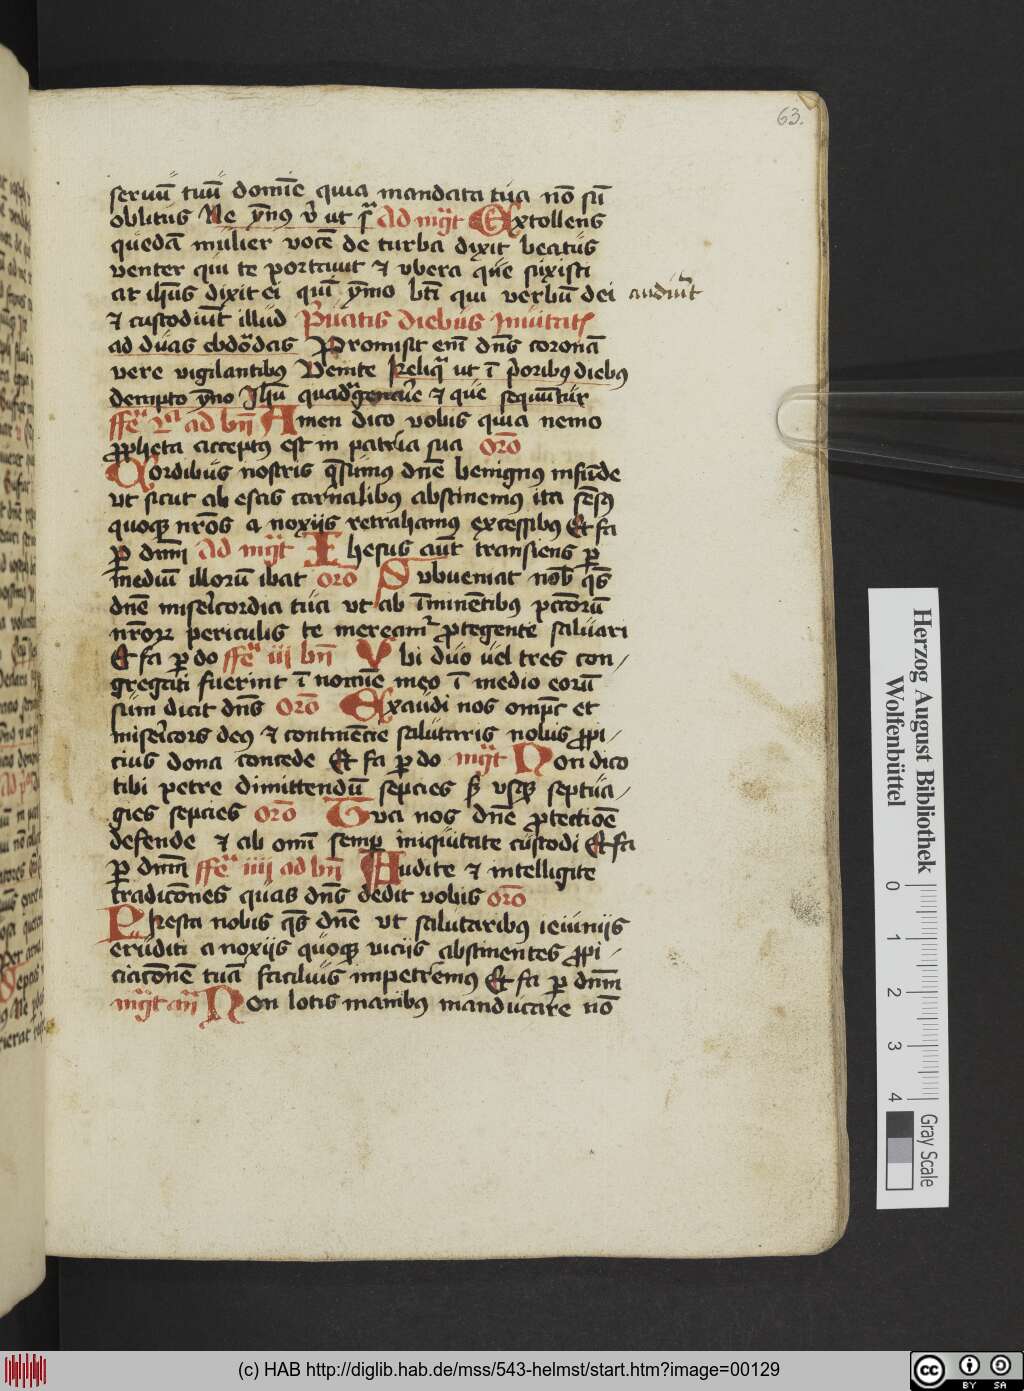 63.
seruū tuū domīe quia mandata tua nō sū
oblitus Ne ym̄9 v̄ ut ſ Ad mg̃t Extollens
quedā mulier vocē de turba dixit beatus
venter qui te portauit ⁊ vbera que suxisti
at ih̄us dixit ei quī ym̄mo bt̄i qui verbū dei audiūt
⁊ custodiūt illud Priuatis diebus Inuitat
ad duas ebdōdas Promisit em̄ dn̄s coronā
vere vigilantibus Venite Reliq̄ ut ī prioribus diebus
dempto ym̄o Ih̄u quadragenarie ⁊ que sequūtur
ffẽ 2ª ad bn̄ Amen dico vobis quia nemo
propheta acceptus est in patria sua orō
Cordibus nostris q̄sumus dn̄e benignus infūde
ut sicut ab escis carnalibus abstinemus ita sēsus
quoque nr̄os a noxijs retrahamus excessibus Et fa
p̱ dnm̄ Ad mg̃t Ihesus aūt transiens p̱
mediū illorū ibat orō Subueniat nob̄ q̄s
dn̄e misericordia tua ut ab īminētibus pctōrū
nr̄orꝝ periculis te mereamur protegente saluari
Et fa p̱ do ffẽ iij bn̄ Vbi duo uel tres con/
gregati fuerint ī nomīe meo ī medio eorū
sum dicit dn̄s orō Exaudi nos omp̄c et
misericors deus ⁊ continēcie salutaris nobis p̱pi/
cius dona concede Et fa p̱ do mg̃t Non dico
tibi petre dimittendū sepcies sȝ vsqȝ septua/
gies sepcies orō Tua nos dn̄e protectiōe
defende ⁊ ab omī semper iniquitate custodi Et fa
p̱ dnm̄ ffẽ iiij ad bn̄ Audite ⁊ intelligite
tradicōnes quas dn̄s dedit vobis orō
Presta nobis q̄s dn̄e ut salutaribus ieiunijs
eruditi a noxijs quoque vicijs abstinentes p̱pi/
ciacōnem tuā facilius impetremus Et fa p̱ dnm̄
mg̃t an̄ Non lotis manibus manducare nō
Herzog August Bibliothek
Wolfenbüttel
0 1 2 3 4
Gray Scale
(c) HAB http://diglib.hab.de/mss/543-helmst/start.htm?image=00129
cc BY SA